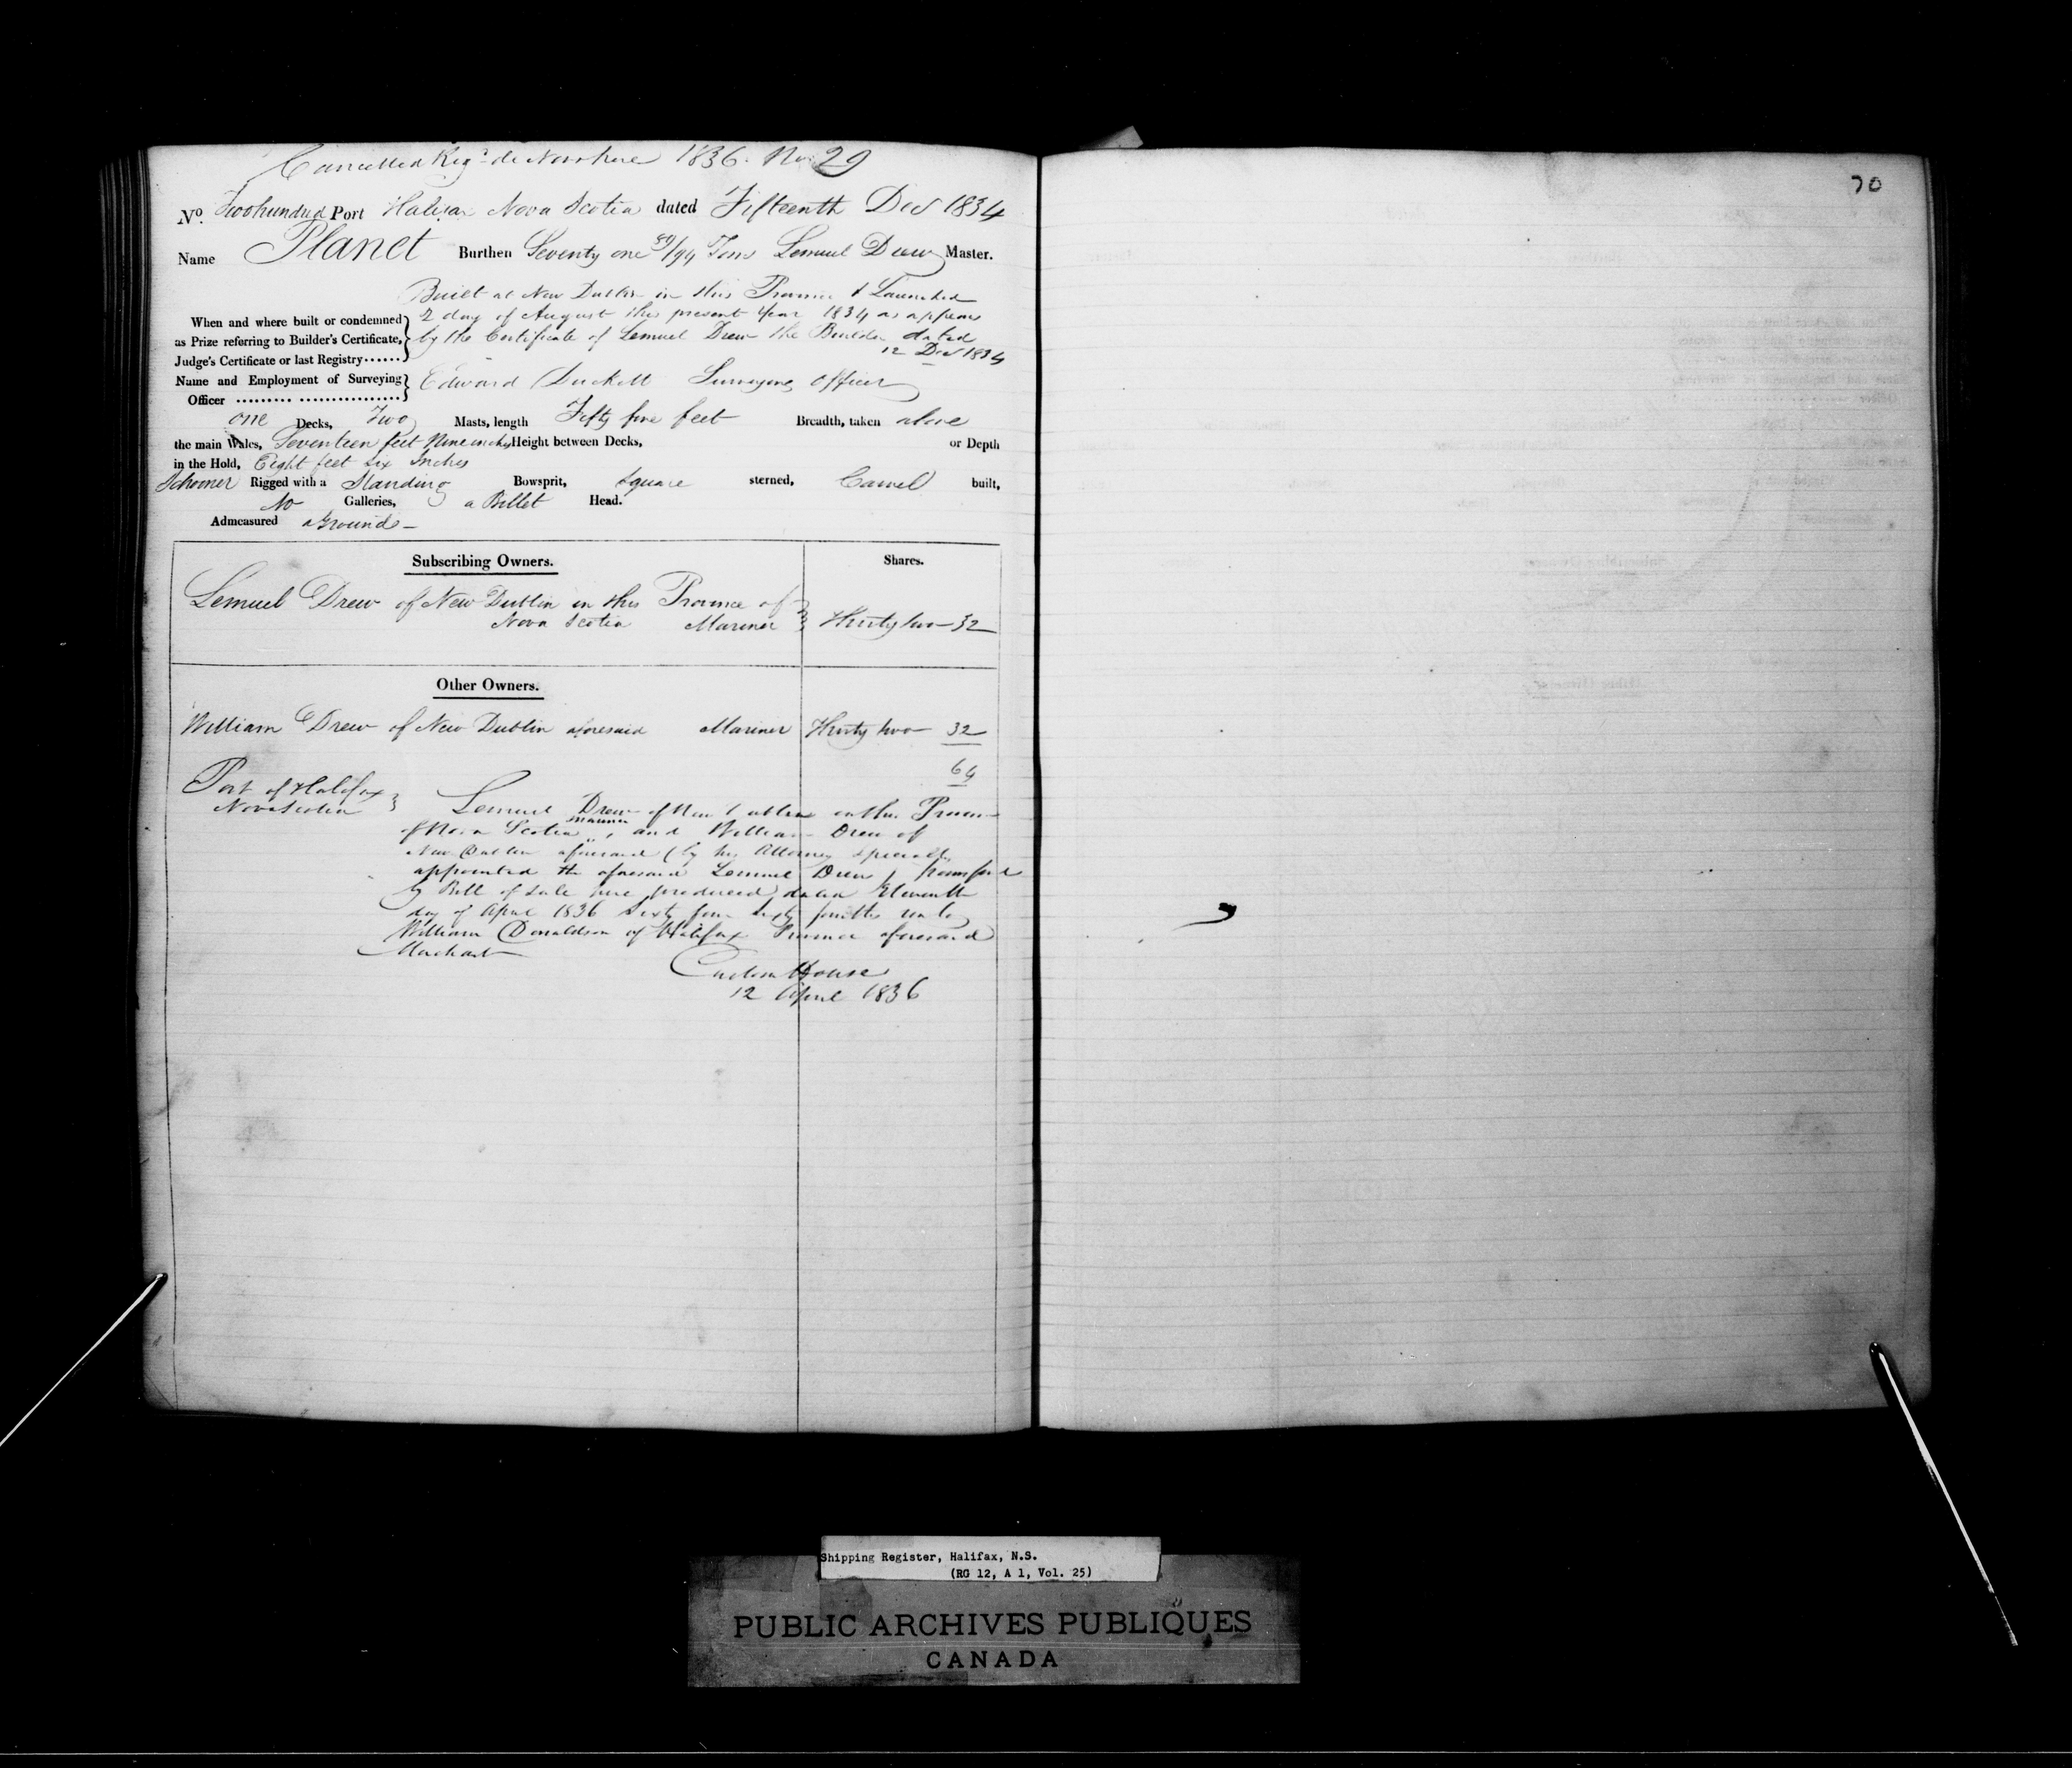 Cancelled Regd de Novo here 1836. No 29
70
No. Two hundred Port Halifax Nova Scotia dated Fifteenth Decr 1834
Name Planet Burthen Seventy one /94 Tons Lemuel Drew Master.
Built at New Dublin in this Province & Launched
When and where built or condemned 2 day of August this present Year 1834 as appears
as Prize referring to Builder's Certificate, by the Certificate of Lemuel Drew the Builder dated
Judge's Certificate or last Registry...... 12 Decr 1834
Name and Employment of Surveying Edward Duckett Surveying Officer
Officer ......... ................
one Decks, Two Masts, length Fifty five feet Breadth, taken above
the main Wales, Seventeen feet Nine inches Height between Decks, or Depth
in the Hold, Eight feet six Inches
Schooner Rigged with a Standing Bowsprit, Square sterned, Carvel built,
No Galleries, a Billet Head.
Admeasured aground
Subscribing Owners. Shares.
Lemuel Drew of New Dublin in this Province of
Nova Scotia Mariner Thirty two 32
Other Owners.
William Drew of New Dublin aforesaid Mariner Thirty two 32
64
Port of Halifax
Nova Scotia
Lemuel Drew of New Dublin in the Province
mariner
of Nova Scotia, and William Drew of
New Dublin aforesaid (by his Attorney specially
appointed the aforesaid Lemuel Drew) transferred
by Bill of Sale here produced dated Eleventh
day of April 1836 Sixty four Sixty fourths unto
William Donaldson of Halifax Province aforesaid
Merchant
Custom House
12 April 1836
Shipping Register, Halifax, N.S.
(RG 12, A 1, Vol. 25)
PUBLIC ARCHIVES PUBLIQUES
CANADA